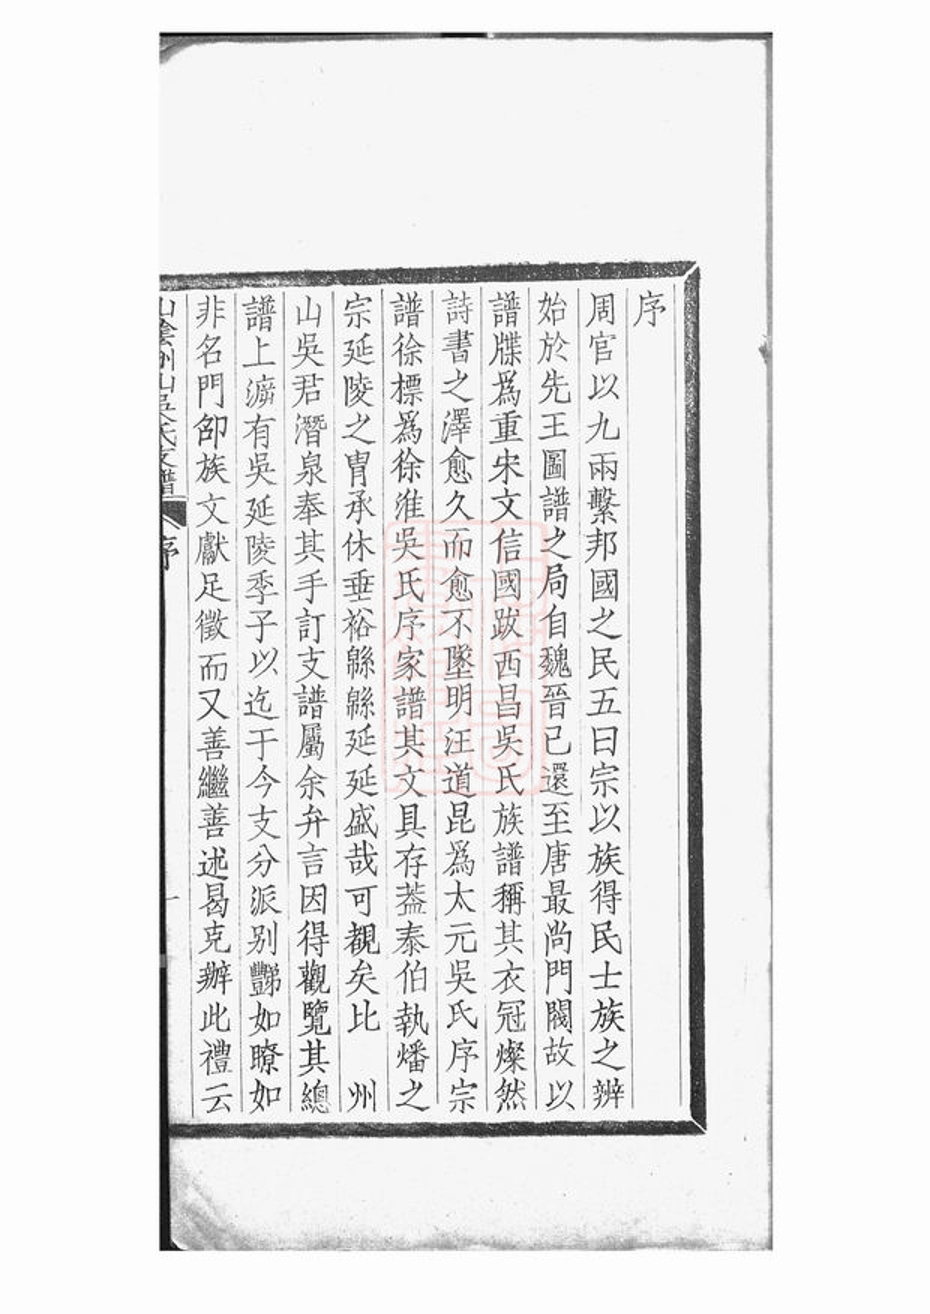 序
周官以九兩繫邦國之民五曰宗以族得民士族之辨
始於先王圖譜之局自魏晉已還至唐最尚門閥故以
譜牒爲重宋文信國跋西昌吳氏族譜稱其衣冠燦然
詩書之澤愈久而愈不墜明汪道昆爲太元吳氏序宗
譜徐標爲徐淮吳氏序家譜其文具存葢泰伯執燔之
宗延陵之胄承休垂裕緜緜延延盛哉可覩矣比　州
山吳君潛泉奉其手訂支譜屬余弁言因得觀覽其總
譜上溯有吳延陵季子以迄于今支分派別豔如瞭如
非名門卲族文獻足徵而又善繼善述曷克辦此禮云
山陰州山吳氏支譜
序
一